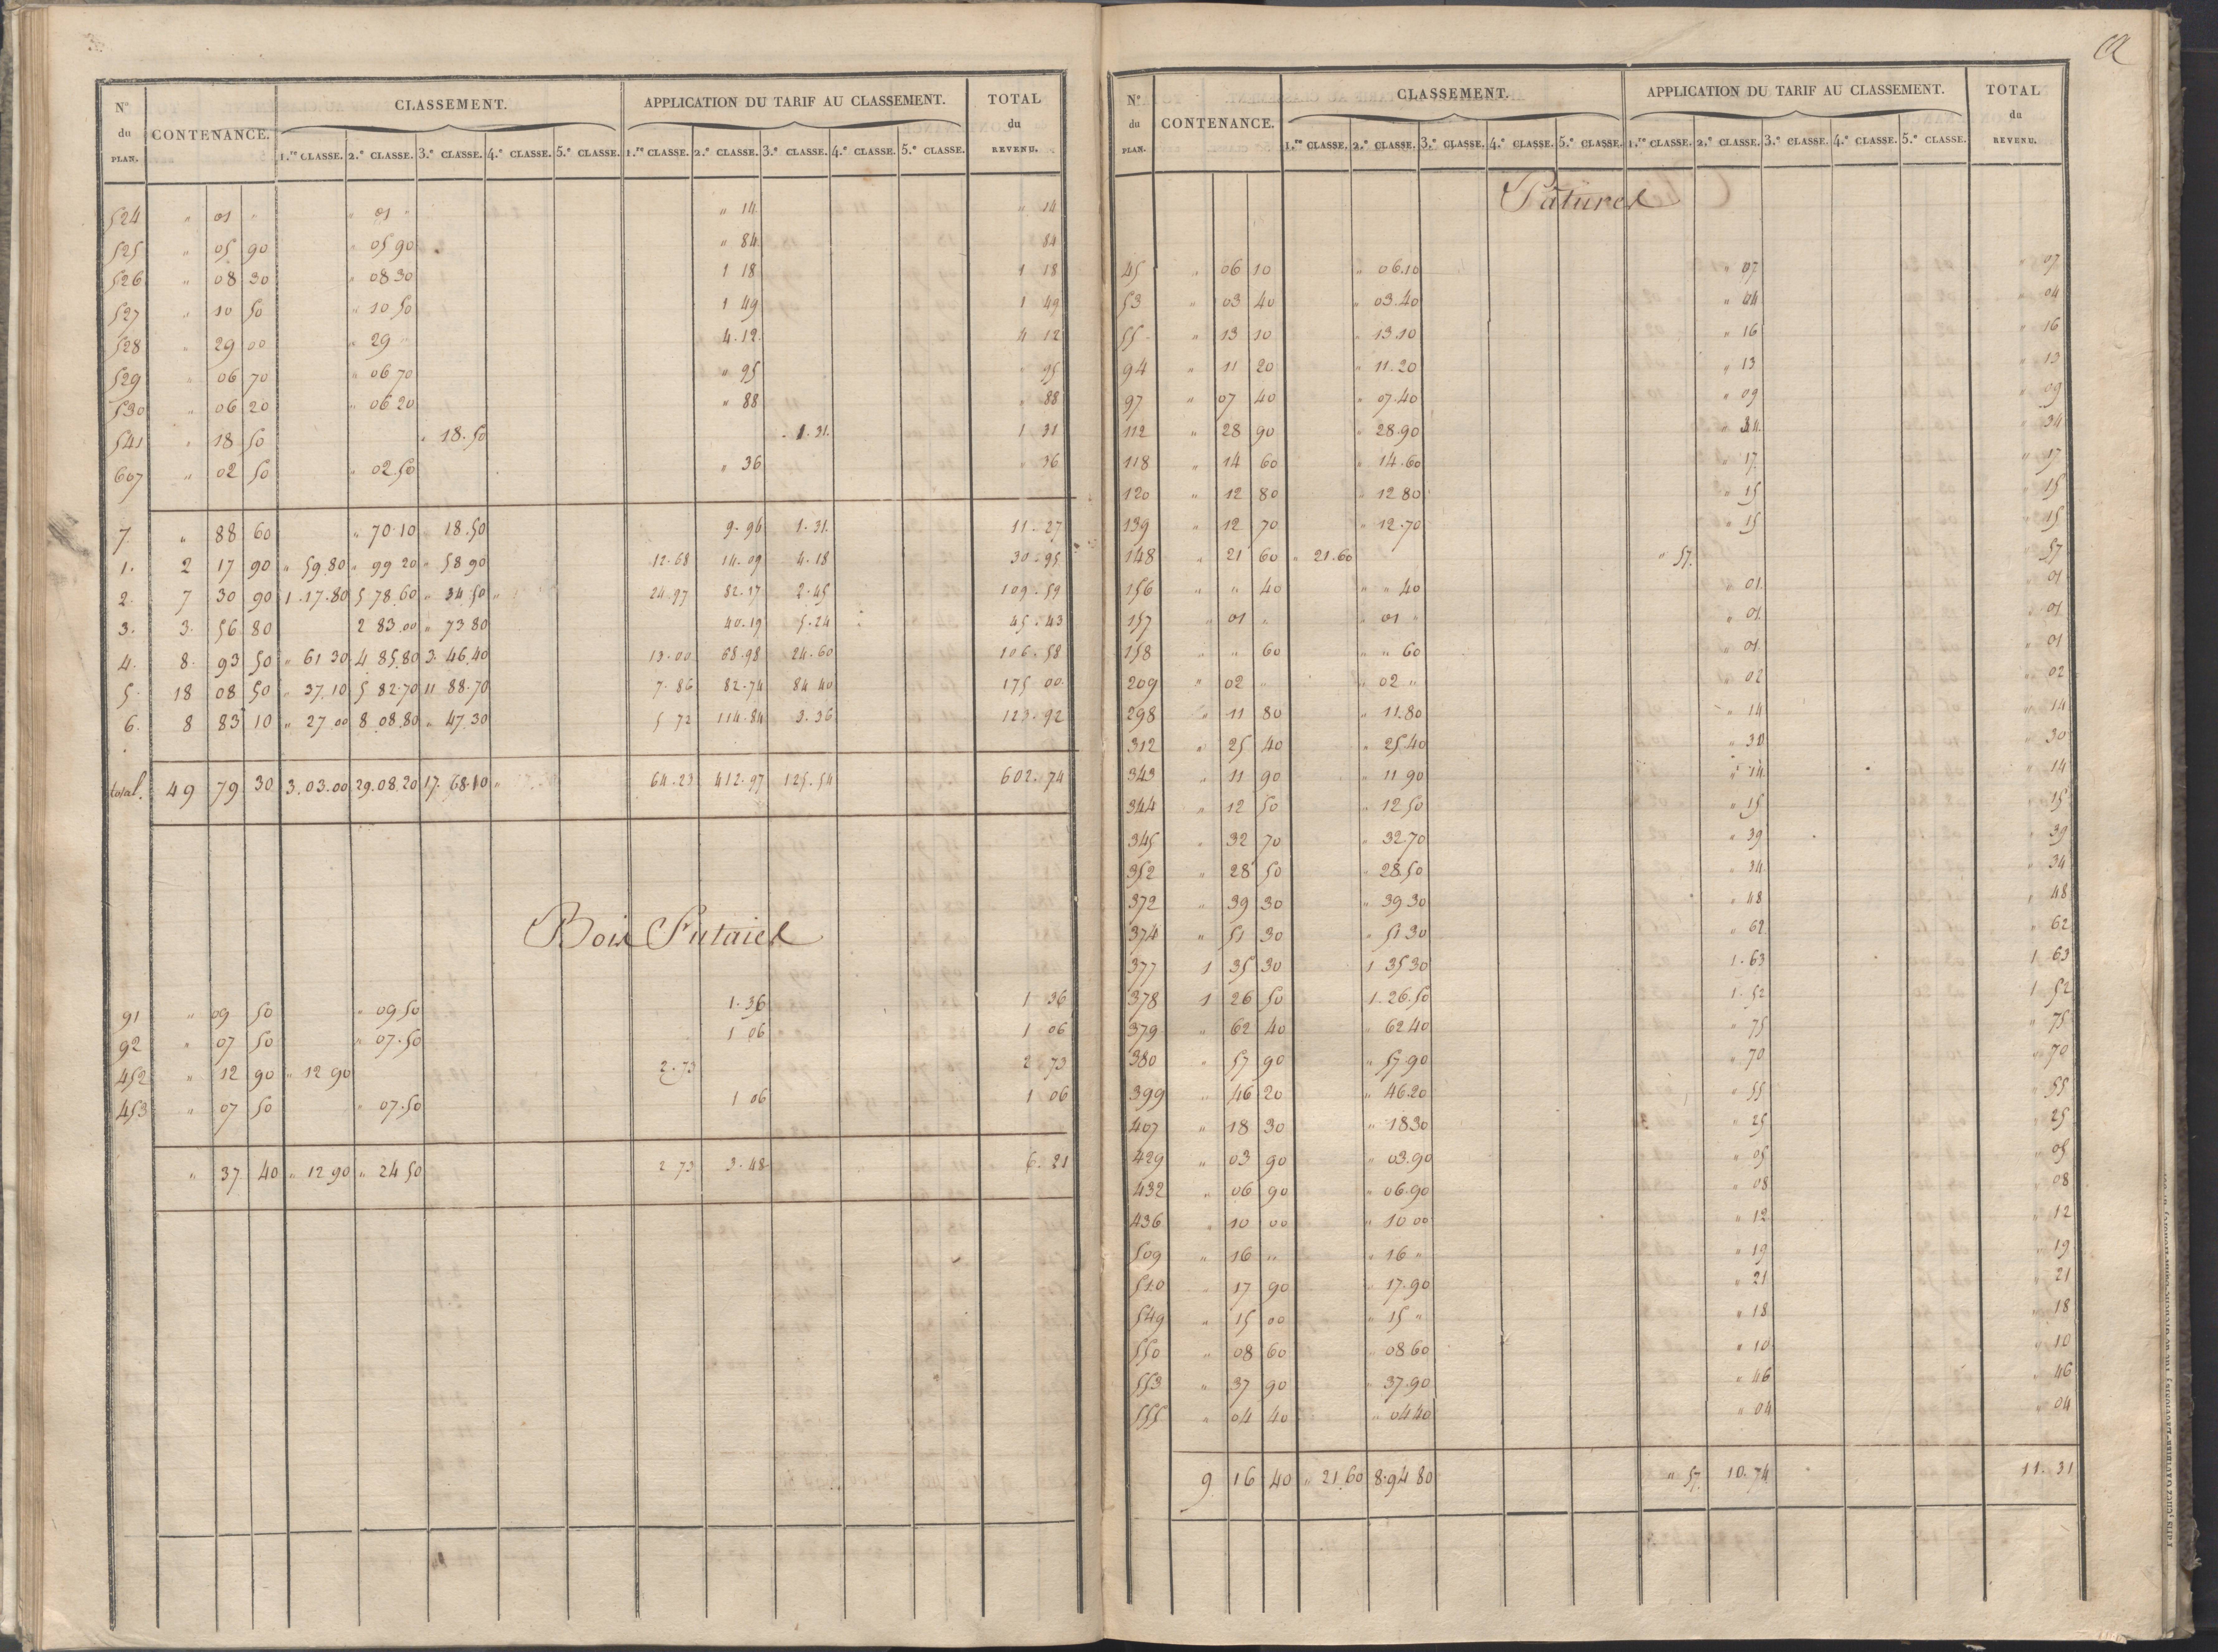 N° du PLAN. CONTENANCE. CLASSEMENT. APPLICATION DU TARIF AU CLASSEMENT. TOTAL du REVENU.
1.re CLASSE. 2.e CLASSE. 3.e CLASSE. 4.e CLASSE. 5.e CLASSE. 1.re CLASSE. 2.e CLASSE. 3.e CLASSE. 4.e CLASSE. 5.e CLASSE.
524 " 01 " " 01 " " 14 " 14
525 " 05 90 " 05 90 " 84 " 84
526 " 08 30 " 08 30 1 18 1 18
527 " 10 50 " 10 50 1 49 1 49
528 " 29 00 " 29 " 4.12 4 12
529 " 06 70 " 06 70 " 95 " 95
530 " 06 20 " 06 20 " 88 " 88
541 " 18 50 " 18.50 1.31. 1 31
607 " 02 50 " 02.50 " 36 " 36
7. " 88 60 " 70.10 " 18.50 9.96 1.31. 11.27
1. 2 17 90 " 59.80 " 99 20 " 58 90 12.68 14.09 4.18 30.95
2. 7 30 90 1.17.80 5 78.60 " 34.50 24.97 82.17 2.45 109.59
3. 3. 56 80 2 83.00 " 73 80 40.19 5.24 45.43
4. 8. 93 50 " 61 30 4 85.80 3.46.40 13.00 68.98 24.60 106.58
5. 18 08 50 " 37.10 5 82.70 11 88.70 7.86 82.74 84 40 175 00
6. 8 83 10 " 27.00 8 08.80 " 47.30 5 72 114.84 3.36 123.92
total. 49 79 30 3.03.00 29.08.20 17.68.10 64.23 412.97 125.54 602.74
Bois Futaies
91 " 09 50 " 09.50 1.36 1 36
92 " 07 50 " 07.50 1 06 1 06
452 " 12 90 " 12 90 2.73 2 73
453 " 07 50 " 07.50 1 06 1 06
" 37 40 " 12 90 " 24 50 2 73 3.48 6.21
N° du PLAN. CONTENANCE. CLASSEMENT. APPLICATION DU TARIF AU CLASSEMENT. TOTAL du REVENU.
1.re CLASSE. 2.e CLASSE. 3.e CLASSE. 4.e CLASSE. 5.e CLASSE. 1.re CLASSE. 2.e CLASSE. 3.e CLASSE. 4.e CLASSE. 5.e CLASSE.
Pâtures
45 " 06 10 " 06.10 " 07 " 07
53 " 03 40 " 03.40 " 04 " 04
55 " 13 10 " 13.10 " 16 " 16
94 " 11 20 " 11.20 " 13 " 13
97 " 07 40 " 07.40 " 09 " 09
112 " 28 90 " 28.90 " 34 " 34
118 " 14 60 " 14.60 " 17 " 17
120 " 12 80 " 12 80 " 15 " 15
139 " 12 70 " 12.70 " 15 " 15
148 " 21 60 " 21.60 " 57. " 57
156 " " 40 " " 40 " 01. " 01
157 " 01 " " 01 " " 01. " 01
158 " " 60 " " 60 " 01 " 01
209 " 02 " " 02 " " 02 " 02
298 " 11 80 " 11.80 " 14 " 14
312 " 25 40 " 25.40 " 30 " 30
343 " 11 90 " 11 90 " 14 " 14
344 " 12 50 " 12 50 " 15 " 15
345 " 32 70 " 32.70 " 39 " 39
352 " 28 50 " 28.50 " 34 " 34
372 " 39 30 " 39 30 " 48 " 48
374 " 51 30 " 51 30 " 62 " 62
377 1 35 30 1 35 30 1.63 1 63
378 1 26 50 1.26.50 1.52 1 52
379 " 62 40 " 62 40 " 75 " 75
380 " 57 90 " 57.90 " 70 " 70
399 " 46 20 " 46.20 " 55 " 55
407 " 18 30 " 18 30 " 25 " 25
429 " 03 90 " 03.90 " 05 " 05
432 " 06 90 " 06.90 " 08 " 08
436 " 10 00 " 10 00 " 12 " 12
509 " 16 " " 16 " " 19 " 19
510 " 17 90 " 17.90 " 21 " 21
549 " 15 00 " 15 " " 18 " 18
550 " 08 60 " 08.60 " 10 " 10
553 " 37 90 " 37.90 " 46 " 46
555 " 04 40 " 04 40 " 04 " 04
9 16 40 " 21.60 8.94 80 " 57. 10.74 11.31